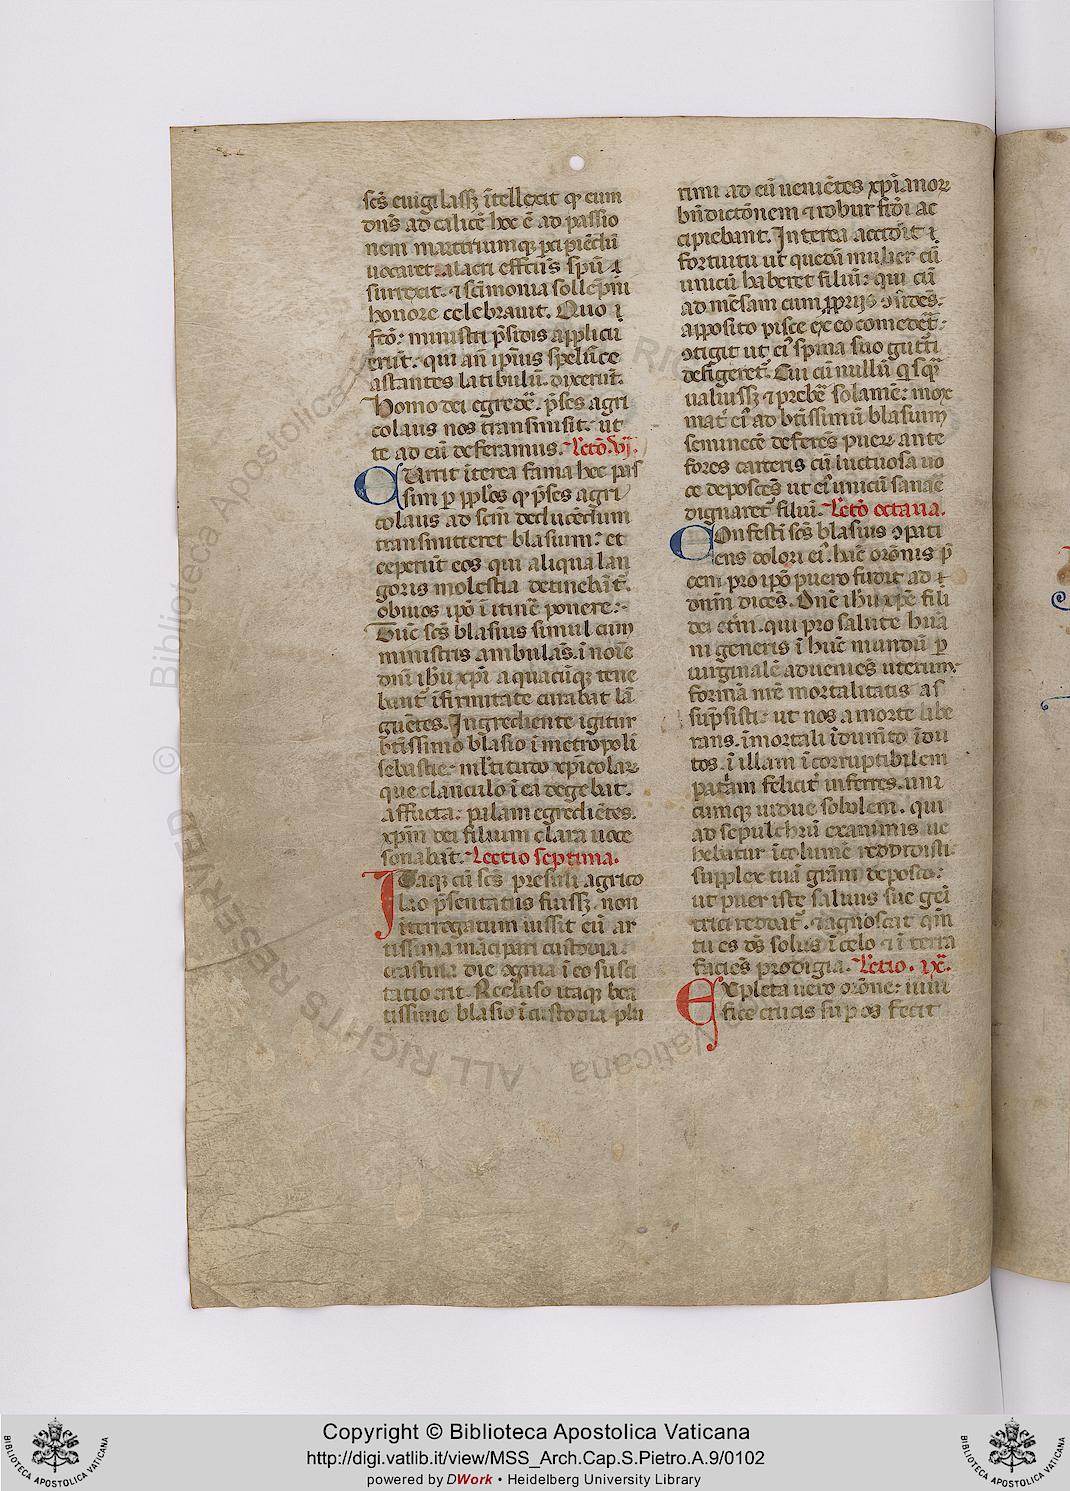 scs̄ euigilassꝫ ītellexit qꝫ eum
dns̄ ad calicē hoc ē ad passio
nem martiriumqꝫ
uocaret. alacri effectus̄ spū
surrexit. ⁊ scīmonia sollēpni
honore celebrauit. Quo i
fcō: ministri p̄sidis applicu
erūt: qui an̄ ipsius spelūce
astantes latibulū. dixerūt.
Homo dei egredē. p̄ses agri
colaus nos transmisit: ut
te ad eū deferamus. Lctō. vj.
Currit īterea fama hec pas
sim p ppl̄os qꝫ p̄ses agri
colaus ad scm̄ deducēdum
transmitteret blasium: et
ceperūt eos qui aliqua lan
goris molestia detinebāt̄
obuios ip̄o ī itinē ponere:
Tunc scs̄ blasius simul cum
ministris ambulās. ī noīe
dn̄i ihū xp̄i a quacūqꝫ tene
bant̄ īfirmitate curabat lā
guētes. Ingrediente igitur
btīssimo blasio ī metropoli
sebastie: ml̄titudo xp̄icolaꝝ
que clanculo ī ea degebat.
affucta: pilam egrediētes.
xpm̄ dei filium clara uoce
sonabāt. Lectio septima.
Itaqꝫ cū scs̄ presuli agrico
lao p̄sentatus fuissꝫ. non
interrogatum iussit eū ar
tissima mācipari custodia:
crastina die ꝯgrua ī eo susci
tatio erit. Recluso itaqꝫ bea
tissimo blasio ī custodia plu
rimi ad eū ueniētes xp̄ianoꝝ
bn̄dictōnem ⁊ robur fidei ac
cipiebant. Interea accidit i
fortuitu ut quedā mulier cū
unicū haberet filiū: qui cū
ad mēsam cum pprijs ꝯsidēs.
apposito pisce ex eo comedēt:
ꝯtigit ut ei᾽ spina suo gutt̄i
defigeret̄. Cui cū nullū quisq̄
ualuissꝫ p̄bere solamē: mox
mat̄ ei᾽ ad btīssimū blasium
seminecē deferēs pueꝝ ante
fores carceris cū luctuosa uo
ce deposcēs ut ei᾽ unicū sanare
dignaret̄ filiū. Lctō octaua.
Confestī scs̄ blasius ꝯpati
ens dolori ei᾽. hāc orōnis p̄
cem pro ip̄o puero fudit ad
dn̄m dicēs. Dn̄e ihū xp̄e fili
dei etn̄i. qui pro salute huā
ni generis ī hūc mundū p
uirginalē adueniēs uterum:
formā nr̄e mortalitatis as
sūpsisti: ut nos a morte libe
rans. īmortali īdumēto īdu
tos. ī illam īcorruptibilem
patriam felicit̄ inferres. uni
cumqꝫ uidue sobolem. qui
ad sepulchrū exanimis ue
hebatur īcolumē reddidisti:
supplex tuā grām deposco:
ut puer iste saluus sue geni
trici reddat̄. ⁊ agnoscat qm̄
tu es ds̄ solus ī celo ⁊ ī terra
faciēs prodigia. Lctio. ix.
Expleta uero orōne: uiui
fice crucis sup os fecit
Copyright © Biblioteca Apostolica Vaticana
http://digi.vatlib.it/view/MSS_Arch.Cap.S.Pietro.A.9/0102
powered by DWork • Heidelberg University Library
BIBLIOTECA APOSTOLICA VATICANA
BIBLIOTECA APOSTOLICA VATICANA
© Biblioteca Apostolica Vaticana ALL RIGHTS RESERVED